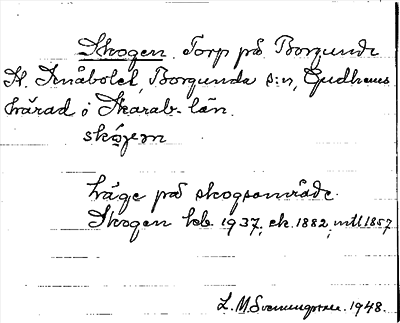 Skogen. Torp på Borgunda
St. Knäbolet, Borgunda s:n, Gudhems
härad i Skarab. län.
skógem
Läge på skogsområde.
Skogen kb. 1937; ek. 1882; mtl 1857
L. M. Svenungsson. 1948.